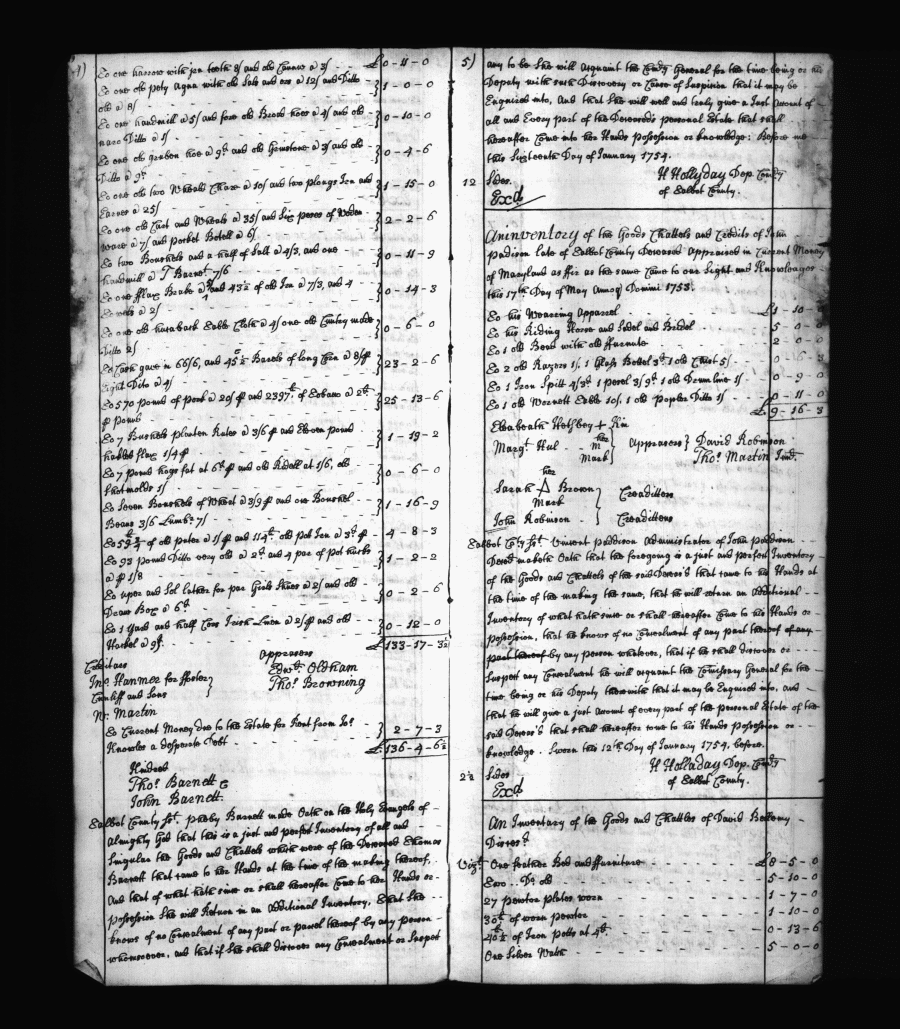 4)
To one harrow with jrn teeth 8/ and old Cannow a 3/ £0-11-0
To one old pety Agua with old Sals and ore a 12/ and Ditto } 1-0-0
old a 8/
To one handmill a 5/ and fore old Broad hoes a 4/ and old } 0-10-0
naro Ditto a 1/
To one old gruben hoe a 9d and old Gemstone a 3/ and old } 0-4-6
Ditto a 9d
To one old two Wheale Chare a 10/ and two plongs Irn and } 1-15-0
Earnes a 25/
To one old Cart and Wheals a 35/ and Six peces of Woden } 2-2-6
ware a 7/ and Pocket Botell a 6/
To two Boushels and a half of Salt a 4/3, and one } 0-11-9
handmill a T Barnet 7/6
To one fflax Brake a and 43½ of old Irn a 7/3, and 4 } 0-14-3
a 2/
To one old hucaback Table Cloth a 4/ one old Cuntry made } 0-6-0
Ditto 2/
To Cash gave in 66/6, and 45 Barels of long Corn a 8/ } 23-2-6
Light Dito a 4/
To 570 Pounds of Pork a 20/ and 2397 of Tobaco a 2 } 25-13-6
Pounds
To 7 Bushels a 3/6 and Eleven Pound } 1-19-2
flax 1/4
To 7 Pound hogs fat at 6d and old Ridell at 1/6, old } 0-6-0
1/
To Seven Boushels of Wheat a 3/9 and one Boushel } 1-16-9
Beans 3/6 Lumbr 7/
To of old Puter a 1/ and 114 old Pot Irn a 3d 4-8-3
To 93 Pound Ditto very old a 2d and 4 par of Pot hucks } 1-2-2
a 1/8
To uper and Sol Lether for par Girls Shues a 2/ and old } 0-2-6
Draw Box a 6d
To 1 Yard and half Irish Linen a 2/ and old } 0-12-0
Hackel a 9/
£133-17-3½
Creditors Apprasers
Jno Hanmer for ffoster } Edwd Oldham
Cunliff and Sons Thos Browning
W. Martin
To Current Money due to the Estate for Rent from Jos } 2-7-3
Knowles a desperate Debt £136-4-6½
Kindred
Thos Barnett
John Barnett
Talbot County Sst. Pheby Barnett made Oath on the Holy Evangels of
Almighty God that this is a just and perfect Inventory of all and
Singular the Goods and Chattels which were of the Deceased Thomas
Barnett that came to her Hands at the time of the making thereof,
And that of what hath since or shall hereafter Come to her Hands or
possession She will Return in an Additional Inventory, That She
knows of no Concealment of any part or parcel thereof by any person
whomsoever, and that if She shall discover any Concealment or Suspect
5)
any to be She will acquaint the Comy General for the time being or his
Deputy with such Discovery or Cause of Suspicion that it may be
Enquired into, And that She will well and truly give a Just Account of
all and Every part of the Deceased's personal Estate that shall
hereafter Come into her Hands Possession or knowledge: Before me
this Sixteenth Day of January 1754.
12 Sides. H Hollyday Dep. Comy
Exd of Talbot County.
An inventory of the Goods Chattels and Credits of John
Padison late of Talbot County Deceased Appraised in Current Money
of Maryland as ffir as the same Came to our Sight and Knowleages
this 17th Day of May Annoq Domini 1753.
To his Wearing Apparel £1-10-
To his Riding Horse and Sadel and Bridel 5-0-0
To 1 old Bead with old ffurnate 2-0-0
To 2 old Razors 1/. 1 Glass Bottel 3d 1 old Chist 5/ 0-6-3
To 1 Iron Spitt 4/3d 1 Pocel 3/9d 1 old Drumline 1/ 0-9-0
To 1 old Wornett Table 10/. 1 old Popler Ditto 1/ 0-11-0
£9-16-3
Elsabeath + Kin
Margt Hul her m Mark } Apprasers } David Robinson
Thos Martin Jund.
her
Sarah Δ Brown } Creaditters
Mark
John Robinson Creadittors
Talbot Cty Sst Vincent Paddison Administrator of John Paddison
Deced maketh Oath that the foregoing is a just and perfect Inventory
of the Goods and Chattels of the said Deceas'd that came to his Hands at
the time of the making the same, that he will return an Additional
Inventory of what hath since or shall hereafter Come to his Hands or
possession, that he knows of no Concealment of any part thereof of any
part thereof by any person whatever, that if he shall discover or
Suspect any Concealment he will acquaint the Comissary General for the
time being or his Deputy therewith that it may be Enquired into, and
that he will give a just Account of every part of the Personal Estate of the
said Deceas'd that shall hereafter come to his Hands Possession or
knowledge. Sworn this 12th Day of January 1754. before.
2½ Sides H Holladay Dep. Comy
Exd of Talbot County.
An Inventary of the Goods and Chattles of David Bellemy
Diceast
Vizt One feather Bed and ffurniture £8-5-0
Two.. Do old 5-10-0
27 pewter plates worn 1-7-0
30 of worn pewter 1-10-0
40½ of Iron Potts at 4d 0-13-6
One Silver Watch 5-0-0